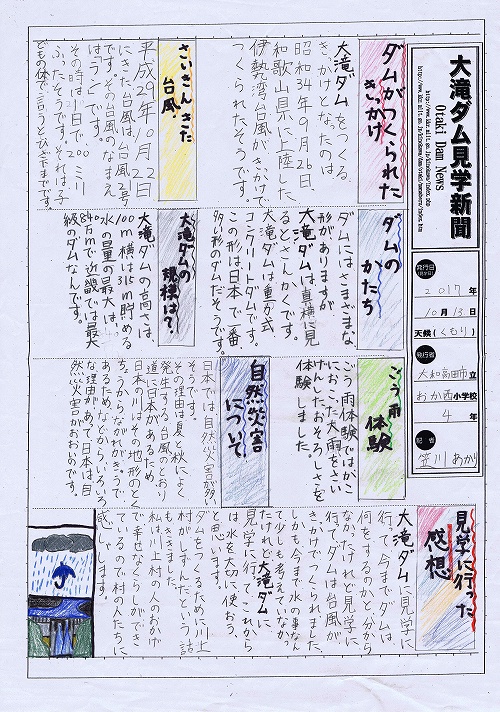 大滝ダム見学新聞
Otaki Dam News
発行日
2017年
10月13日
天候(くもり)
発行者
大和高田市立
おか西小学校
4年
記者
笠川あかり
ダムがつくられた
きっかけ
大滝ダムをつくる
きっかけとなったのは
昭和34年9月26日、
和歌山県に上陸した
伊勢湾台風がきっかけで
つくられたそうです。
さいきんきた
台風
平成29年10月22日
にきた台風は、台風21号
です。その台風のなまえ
は
その時は1日で
ふったそうです。それは子
どもの体で言うとひざ下までです。
ダムの
かたち
ダムにはさまざまな、
形がありますが
大滝ダムは真横に見
るとさんかくです。
大滝ダムは重力式
コンクリートダムです。
この形は日本で一番
多い形のダムだそうです。
大滝ダムの
規模は?
大滝ダムの高さは、
100m横は315m貯める
水の量の最大は、
8400万m³で近畿では最大
級のダムなんです。
ごう雨
体験
ごう雨体験ではがこ
におこった大雨をさい
げんしたおそろしさを
体験しました。
自然災害
について
日本では自然災害が多い
そうです。
その理由は夏と秋によく
発生する台風のとおり
道に日本があるため、
日本の川はその地形のとく
ちょうからながれがきゅうで
あるためなどからいろいろ
な理由があって日本は自
然災害がおおいのです。
見学に行った
感想
大滝ダムに見学に
行って、今までダムは
何をするのかと分から
なかったけれど見学に
行ってダムは台風が
きっかでつくられました。
しかも今まで水の事なん
て少しも考えていなかっ
たけれど大滝ダムに
見学に行ってこれから
は水を大切に使おう、
と思います。
ダムをつくるために川上
村がしずんだという話
もききました。
私は川上村の人のおかげ
で幸せなくらしができ
ているので村の人たちに
感しゃします。